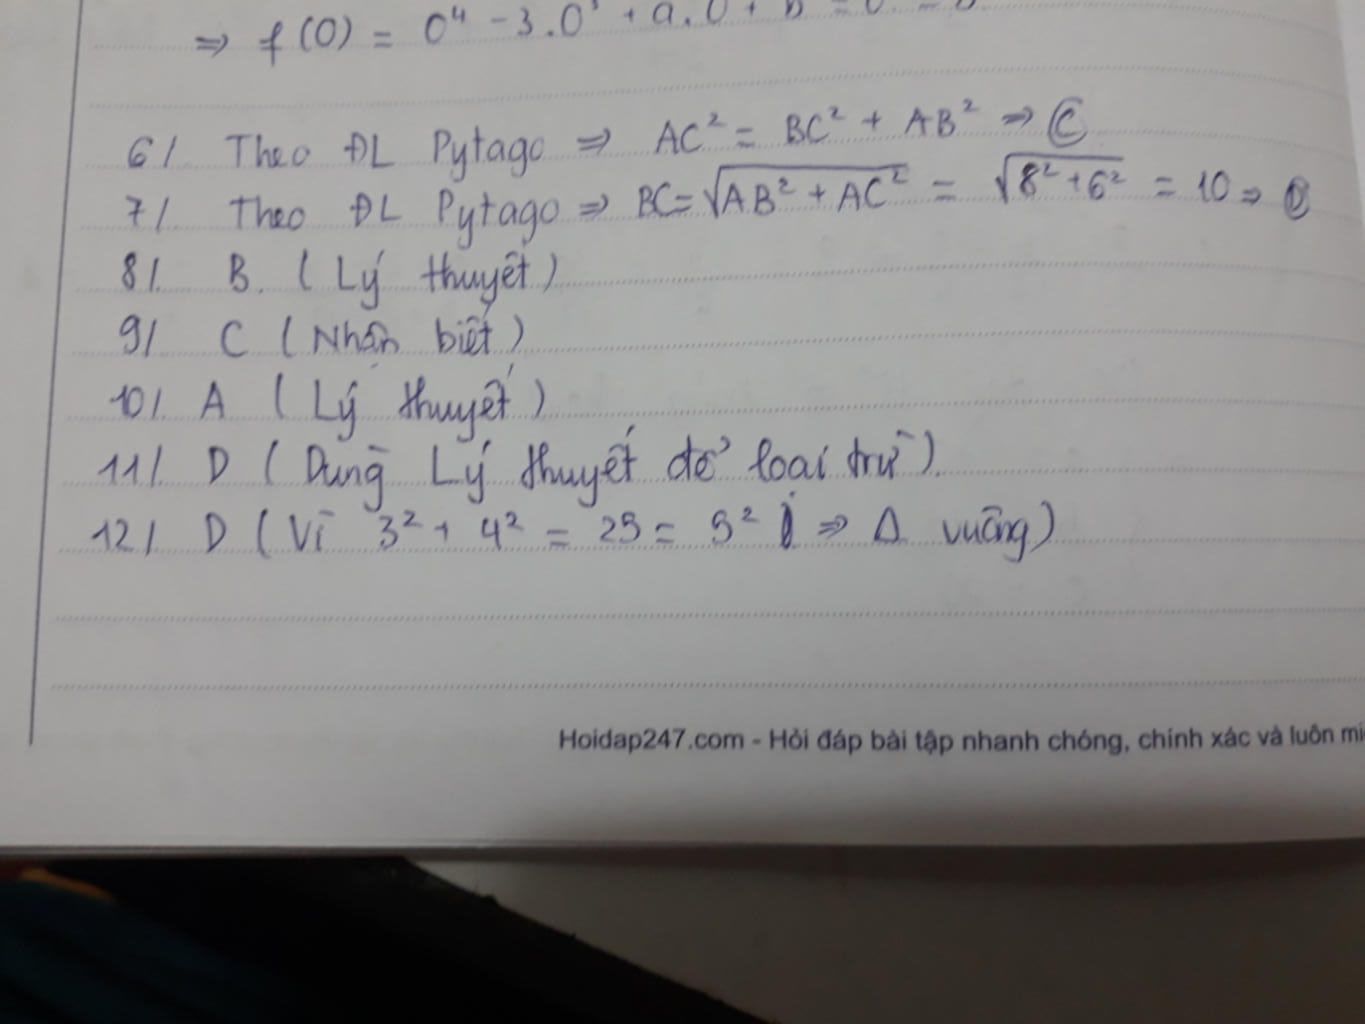 ⇒ f(0) = 0⁴ - 3.0³ + a.0 + b = 0
6/ Theo ĐL Pytago ⇒ AC² = BC² + AB² ⇒ C
7/ Theo ĐL Pytago ⇒ BC = √AB² + AC² = √8² + 6² = 10 ⇒ D
8/ B. (Lý thuyết)
9/ C (Nhận biết)
10/ A (Lý thuyết)
11/ D (Dùng Lý thuyết để loại trừ).
12/ D (Vì 3² + 4² = 25 = 5² ⇒ Δ vuông)
Hoidap247.com - Hỏi đáp bài tập nhanh chóng, chính xác và luôn mi